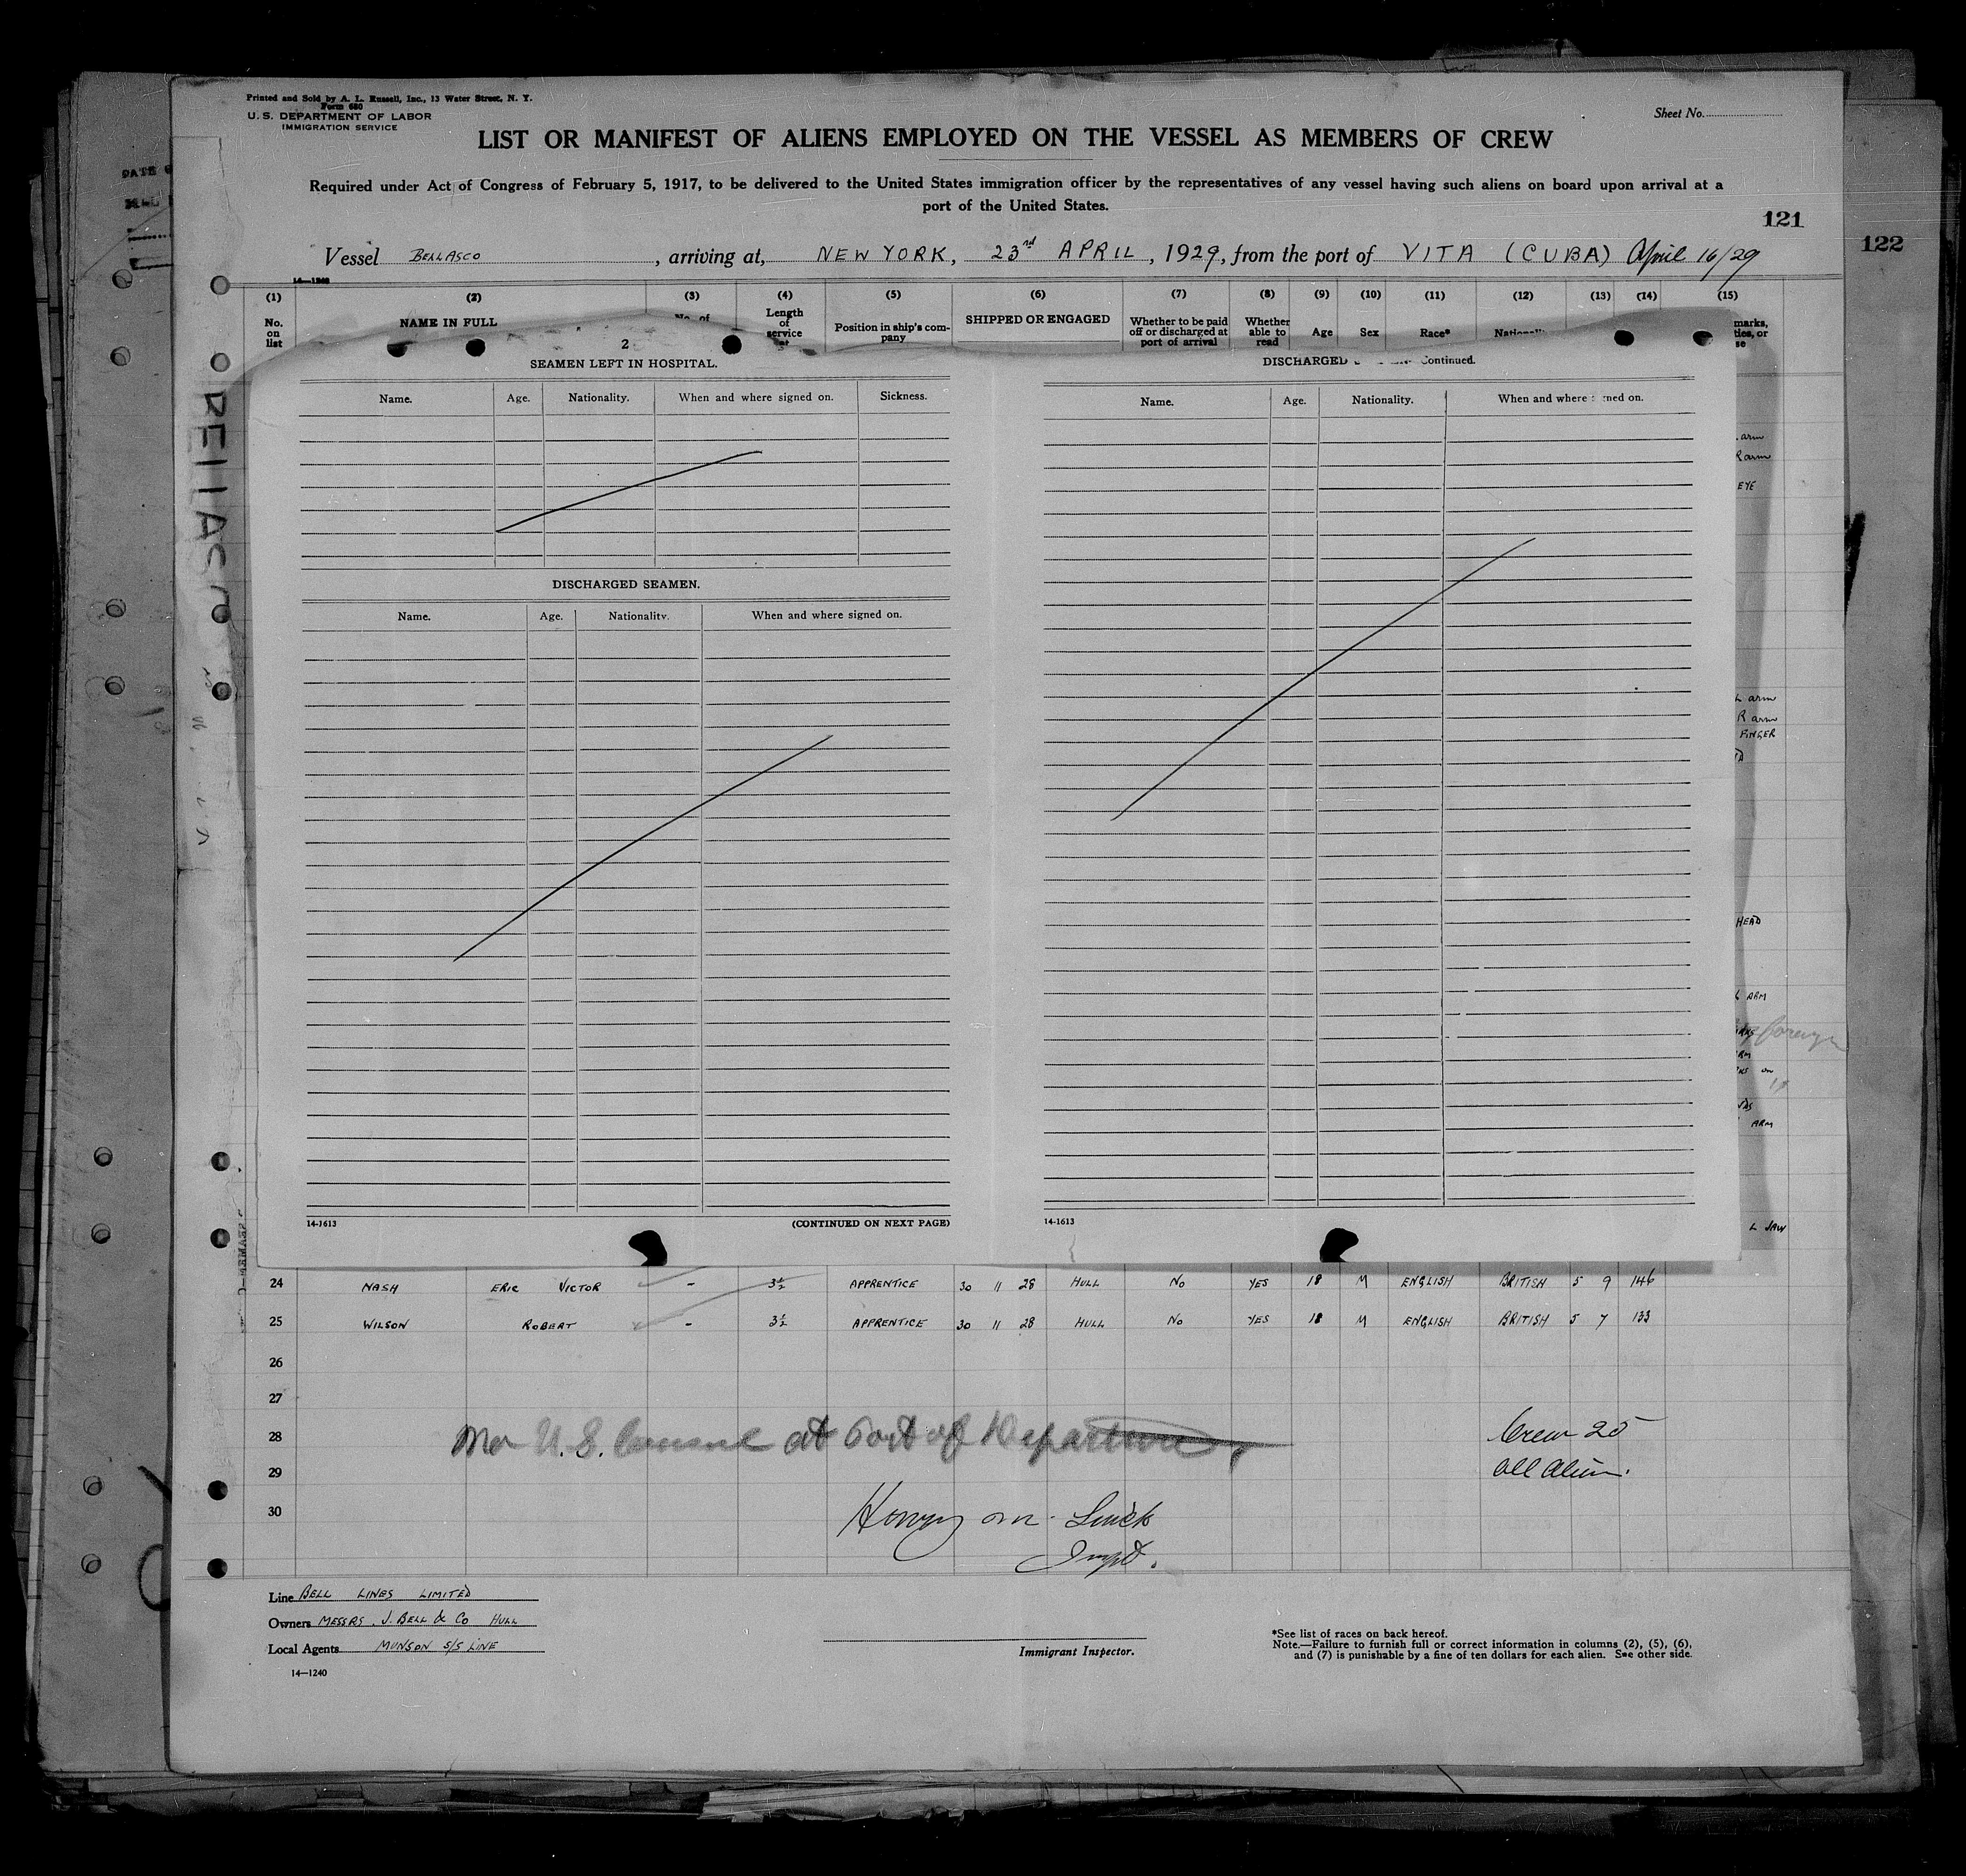 Printed and Sold by A. L. Russell, Inc., 13 Water Street, N. Y.
Form 680
U. S. DEPARTMENT OF LABOR
IMMIGRATION SERVICE
Sheet No.
LIST OR MANIFEST OF ALIENS EMPLOYED ON THE VESSEL AS MEMBERS OF CREW
Required under Act of Congress of February 5, 1917, to be delivered to the United States immigration officer by the representatives of any vessel having such aliens on board upon arrival at a
port of the United States.
121
122
Vessel BELLASCO, arriving at, NEW YORK, 23rd APRIL, 1929, from the port of VITA (CUBA) April 16/29
(1) (2) (3) (4) (5) (6) (7) (8) (9) (10) (11) (12) (13) (14) (15)
No. on list
NAME IN FULL
No. of
Length of service
Position in ship's company
SHIPPED OR ENGAGED
Whether to be paid off or discharged at port of arrival
Whether able to read
Age
Sex
Race*
2
SEAMEN LEFT IN HOSPITAL.
Name. Age. Nationality. When and where signed on. Sickness.
DISCHARGED SEAMEN.
Name. Age. Nationality. When and where signed on.
14-1613 (CONTINUED ON NEXT PAGE)
DISCHARGED Continued.
Name. Age. Nationality. When and where signed on.
14-1613
arm
R arm
EYE
L arm
R arm
FINGER
HEAD
ARM
foreign
ARM
L JAW
24 NASH ERIC VICTOR - 3½ APPRENTICE 30 11 28 HULL No YES 18 M ENGLISH BRITISH 5 9 146
25 WILSON ROBERT - 3½ APPRENTICE 30 11 28 HULL No YES 18 M ENGLISH BRITISH 5 7 133
26
27
28 U.S. at Port of Departure
Crew 25
29
All Alien.
30
Line BELL LINES LIMITED
Owners MESSRS. J. BELL & Co HULL
Local Agents MUNSON S/S LINE
14—1240
Immigrant Inspector.
*See list of races on back hereof.
Note.—Failure to furnish full or correct information in columns (2), (5), (6),
and (7) is punishable by a fine of ten dollars for each alien. See other side.